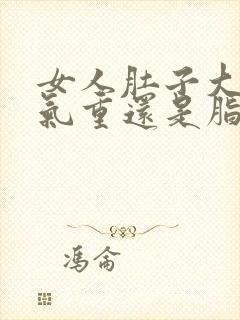 女人肚子大
氣重還是脂
馮侖